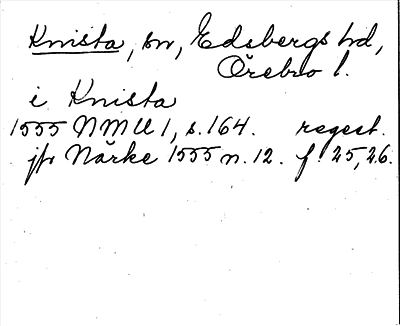 Knista, sn, Edsbergs hd,
Örebro l.
i Knista
1555 NMU 1, s. 164. regest.
jfr Närke 1555 n. 12. f 25, 26.